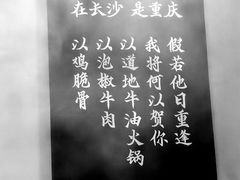 在长沙 是重庆
假若他日重逢
我将何以贺你
以道地牛油火锅
以泡椒牛肉
以鸡脆骨